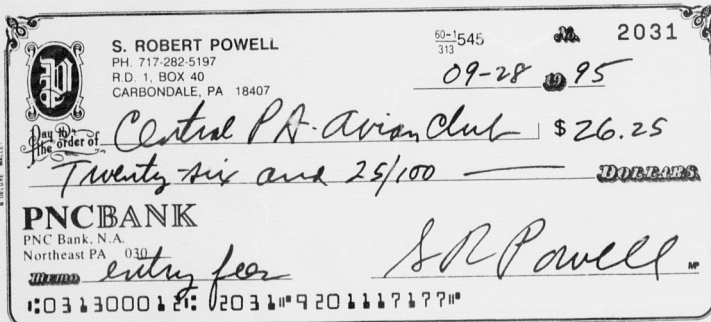 S. ROBERT POWELL
PH. 717-282-5197
R.D. 1, BOX 40
CARBONDALE, PA 18407
60-1/313 545
No. 2031
09-28 19 95
Pay to the order of Central PA. Avian Club $ 26.25
Twenty-six and 25/100 DOLLARS
PNCBANK
PNC Bank, N.A.
Northeast PA 030
MEMO entry fees S R Powell MP
⑆031300012⑆ 2031⑈9201117177⑈